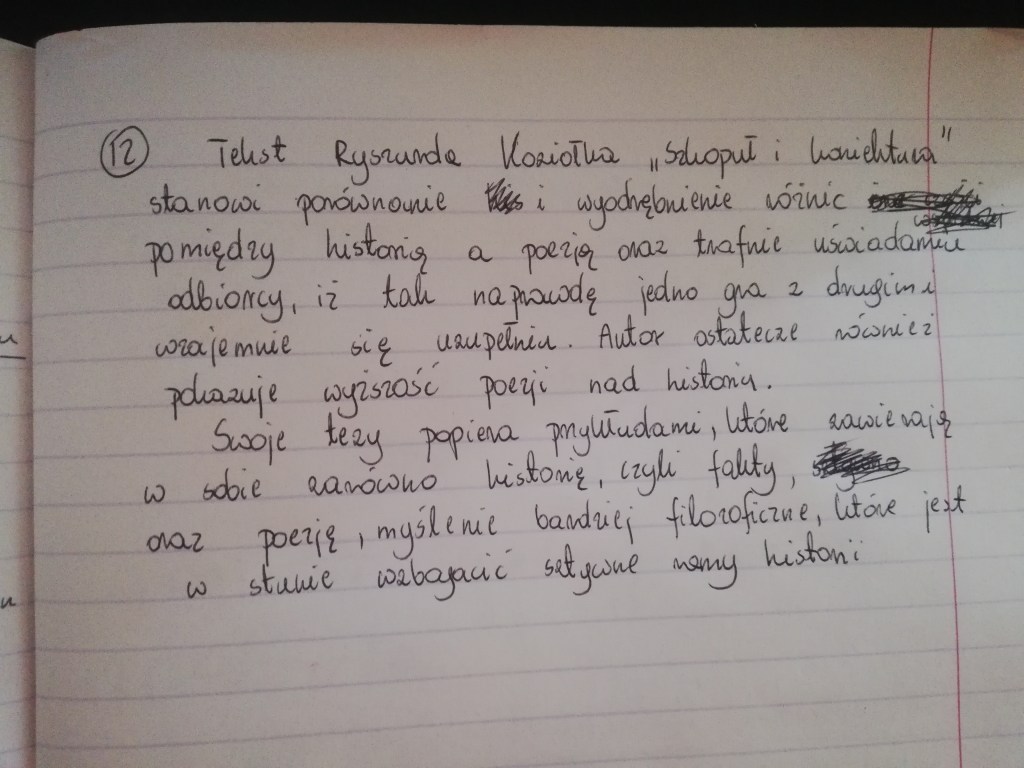 12 Tekst Ryszarda Koziołka „Szkopuł i koniektura"
stanowi porównanie i wyodrębnienie różnic
pomiędzy historią a poezją oraz trafnie uświadamia
odbiorcy, iż tak naprawdę jedno gra z drugim i
wzajemnie się uzupełnia. Autor ostatecze również
pokazuje wyższość poezji nad historią.
Swoje tezy popiera przykładami, które zawierają
w sobie zarówno historię, czyli fakty,
oraz poezję, myślenie bardziej filozoficzne, które jest
w stanie wzbogacić sztywne ramy historii